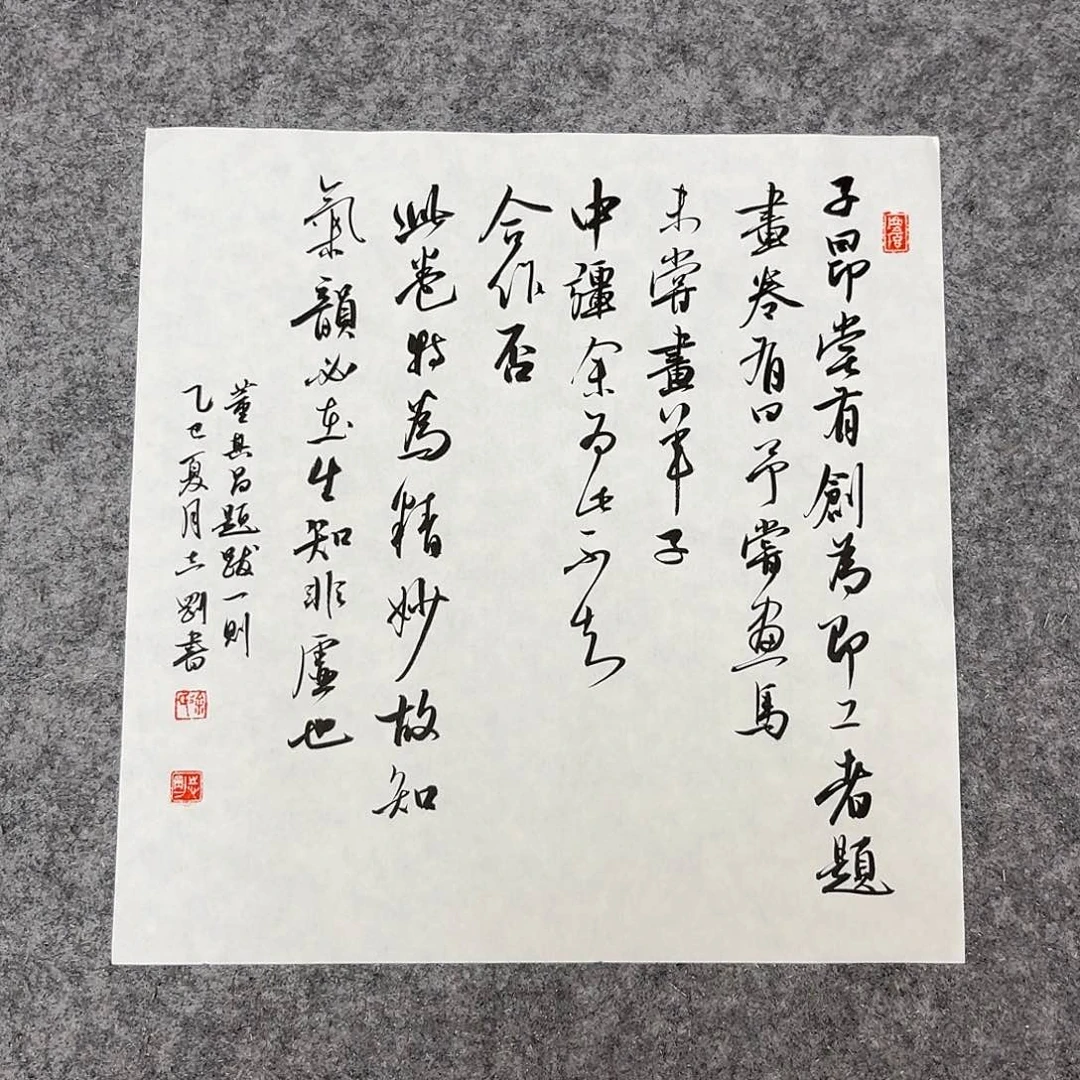 子昂嘗有創為即工者題
畫卷有曰予嘗畫馬
未嘗畫羊子
中疆余為此不知
合作否
此卷特為精妙故知
氣韻必在生知非虛也
董其昌題跋一則
乙巳夏月志剛書